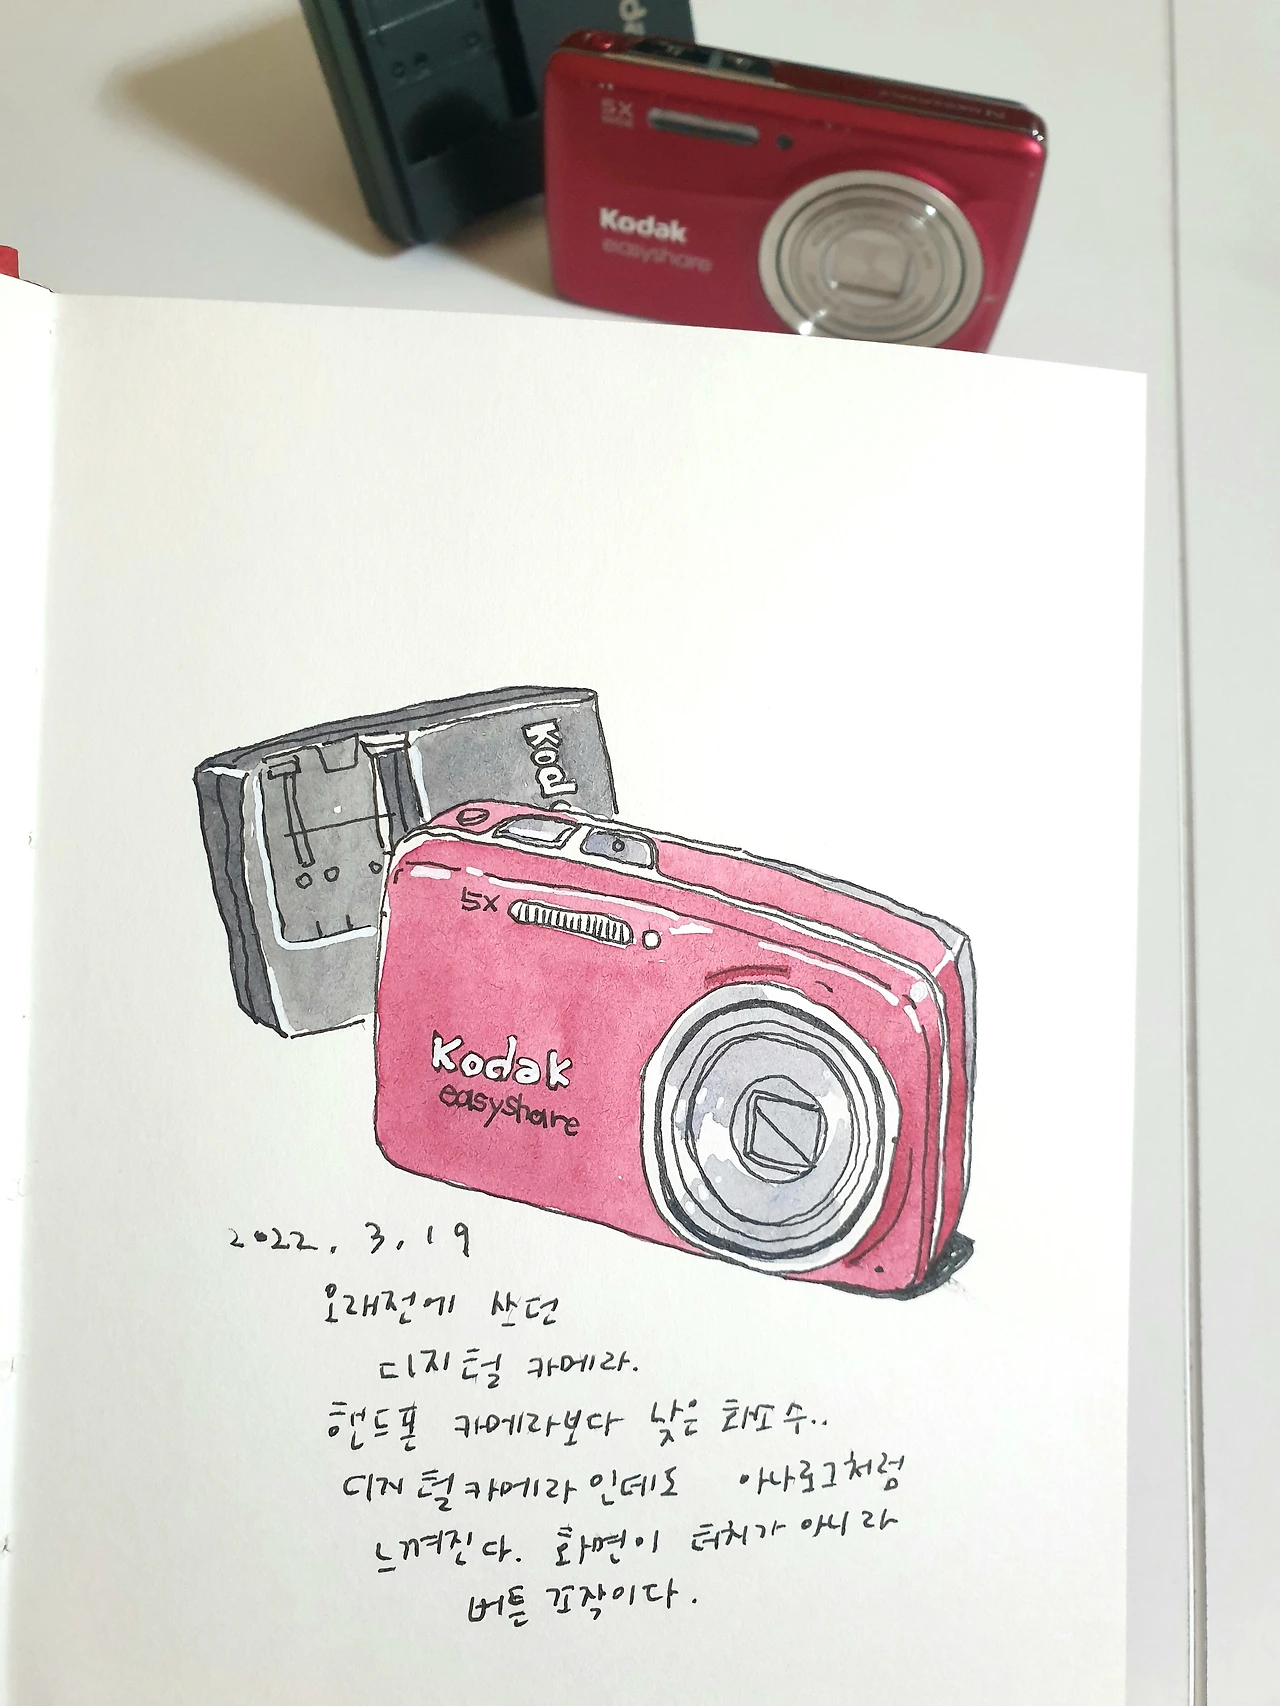 5X
Kodak
easyshare
Kod
5x
Kodak
easyshare
2022. 3. 19
오래전에 샀던
디지털 카메라.
핸드폰 카메라보다 낮은 화소수..
디지털카메라인데도 아나로그처럼
느껴진다. 화면이 터치가 아니라
버튼 조작이다.